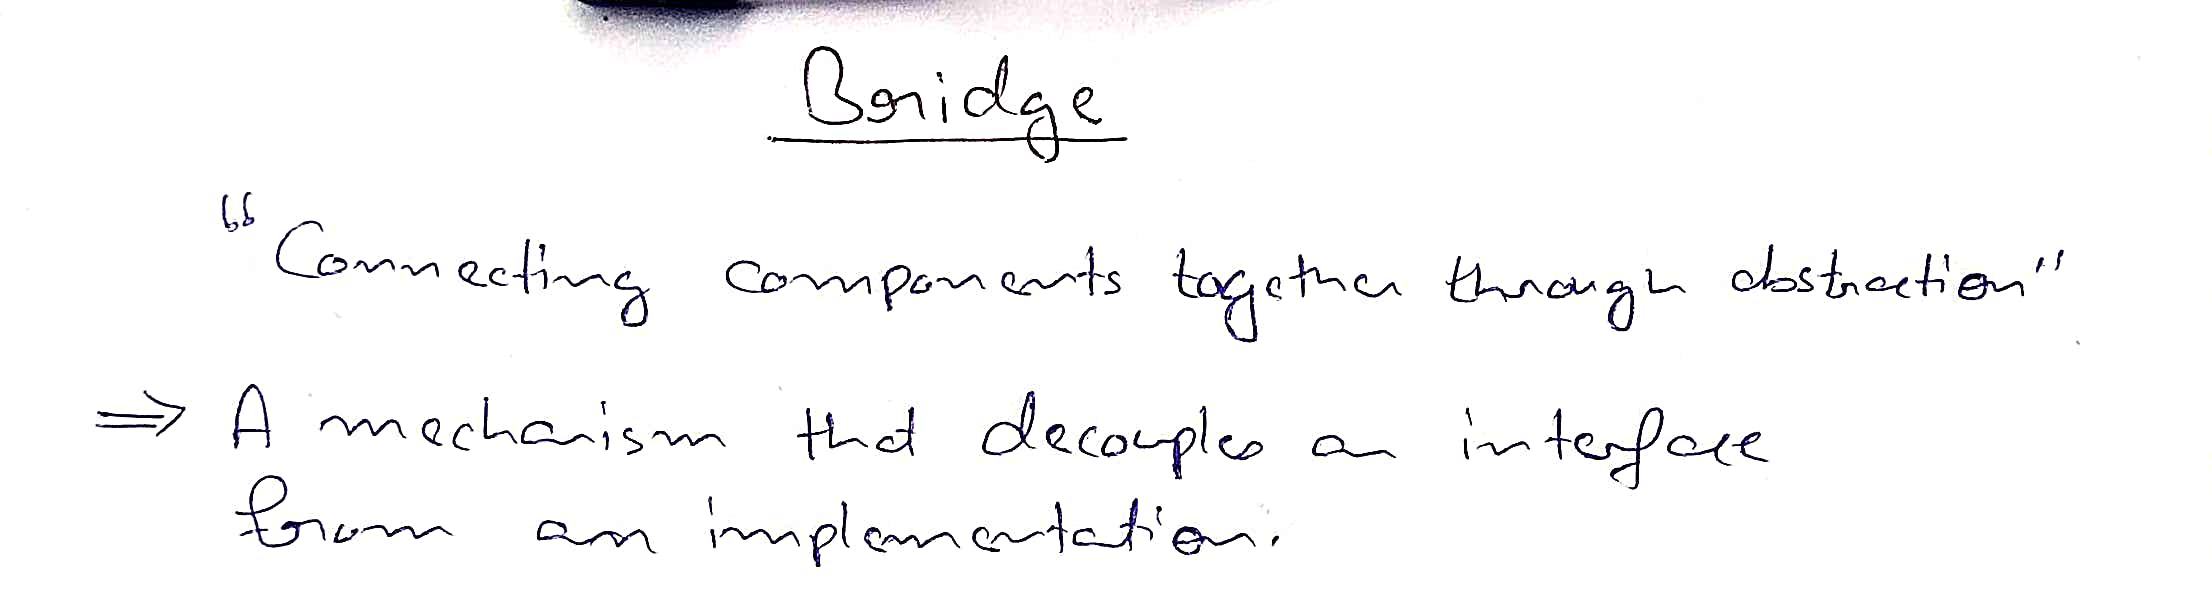 Bridge
"Connecting components together through abstraction"
⇒ A mechanism that decouples an interface
from an implementation.